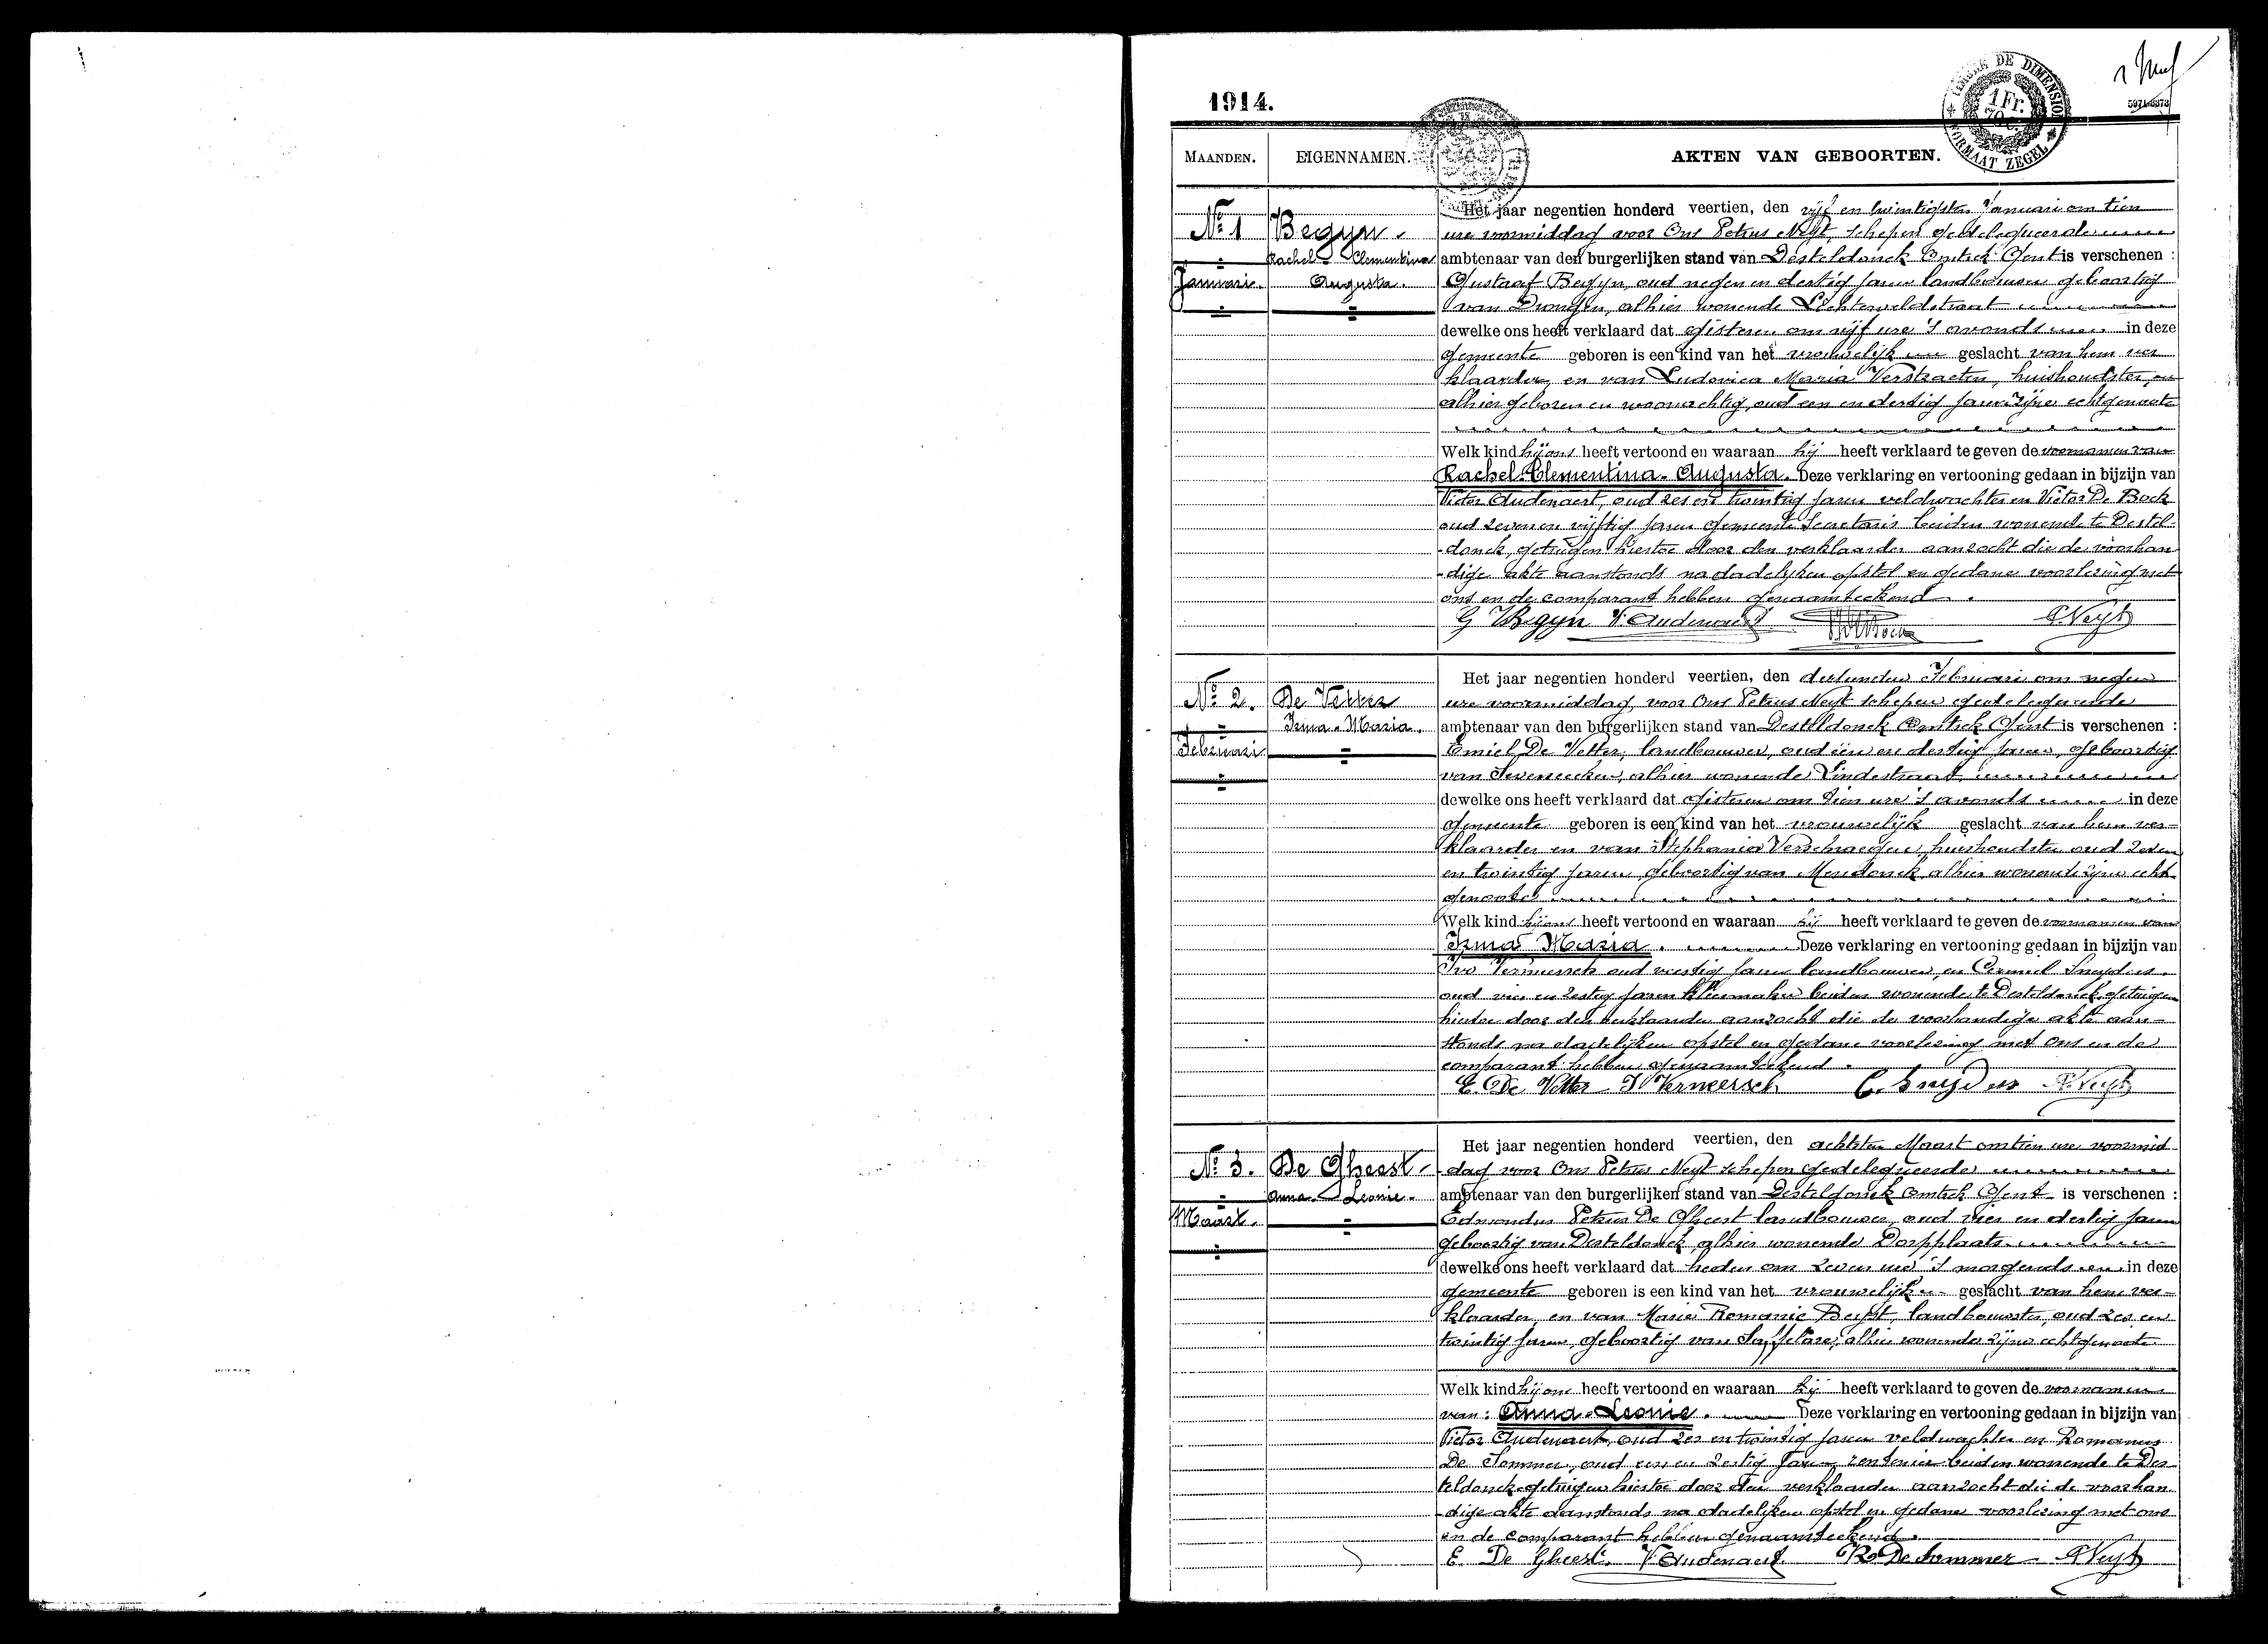 1914.
TIMBRE DE DIMENSION
1 Fr.
FORMAAT ZEGEL
MAANDEN.
EIGENNAMEN.
AKTEN VAN GEBOORTEN.
No 1
Januarie.
Begyn.
Rachel - Clementina
Augusta.
Het jaar negentien honderd veertien, den vijf en twintigsten Januari om tien
ure voormiddag voor Ons Petrus Neyt, schepen gedelegueerde
ambtenaar van den burgerlijken stand van Desteldonck Omtrek Gent is verschenen :
Gustaaf Begyn, oud negen en dertig jaren landbouwer geboortig
van Drongen, alhier wonende Lichterveldstraat
dewelke ons heeft verklaard dat gisteren om vijf ure 's avonds in deze
gemeente geboren is een kind van het vrouwelijk geslacht van hem ver
klaarder, en van Ludovica Maria Verstraeten, huishoudster,
alhier geboren en woonachtig, oud een en dertig jaren zijne echtgenoote
Welk kind hij ons heeft vertoond en waaraan hij heeft verklaard te geven de voornamen van
Rachel-Clementina-Augusta. Deze verklaring en vertooning gedaan in bijzijn van
Victor Audenaert, oud zes en twintig jaren veldwachter en Victor De Bock
oud zeven en vijftig jaren gemeente Secretaris beiden wonende te Destel-
-donck, getuigen hiertoe door den verklaarder aanzocht die de voorhan
-dige akte aanstonds na dadelijken opstel en gedane voorlezing met
ons en de comparant hebben genaamteekend.
G Begyn V. Audenaert P. Neyt
No 2.
Februari
De Vetter
Irma - Maria.
Het jaar negentien honderd veertien, den derlienden Februari om negen
ure voormiddag, voor Ons Petrus Neyt schepen gedelegueerde
ambtenaar van den burgerlijken stand van Desteldonck Omtrek Gent is verschenen :
Emiel De Vetter, landbouwer, oud één en dertig jaren, geboortig
van Seveneecken, alhier wonende Lindestraat
dewelke ons heeft verklaard dat gisteren om tien ure 's avonds in deze
gemeente geboren is een kind van het vrouwelijk geslacht van hem ver-
klaarder en van Stephania Verschraegen, huishoudster oud zeven
en twintig jaren geboortig van Mendonck alhier wonende zijne echt
genoote
Welk kind hij ons heeft vertoond en waaraan hij heeft verklaard te geven de voornamen van
Irma Maria. Deze verklaring en vertooning gedaan in bijzijn van
Ivo Vermeersch oud veertig jaren landbouwer, en Camiel Snyders.
oud vier en zestig jaren kleermaker beiden wonende te Desteldonck, getuigen
hiertoe door den verklaarder aanzocht die de voorhandige akte aan-
stonds na dadelijken opstel en gedane voorlezing met Ons en de
comparant hebben genaamteekend.
E. De Vetter I Vermeersch C. Snyders P. Neyt
No 3.
Maart.
De Gheest.
Anna - Leonie.
Het jaar negentien honderd veertien, den achtsten Maart om tien ure voormid
dag voor Ons Petrus Neyt schepen gedelegueerde
ambtenaar van den burgerlijken stand van Desteldonck Omtrek Gent is verschenen :
Edmondus Petrus De Gheest landbouwer, oud vier en dertig jaren
geboortig van Desteldonck, alhier wonende Dorpplaats
dewelke ons heeft verklaard dat heden om zeven ure 's morgends in deze
gemeente geboren is een kind van het vrouwelijk geslacht van hem ver-
klaarder, en van Marie Romanie Buyst, landbouwster, oud zes en
twintig jaren, geboortig van Saffelare, alhier wonende zijne echtgenoote
Welk kind hij ons heeft vertoond en waaraan hij heeft verklaard te geven de voornamen
van: Anna-Leonie. Deze verklaring en vertooning gedaan in bijzijn van
Victor Audenaert, oud zes en twintig jaren veldwachter en Romanus
De Sommer, oud een en zestig jaren rentenier beiden wonende te Des-
teldonck getuigen hiertoe door den verklaarder aanzocht die de voorhan
-dige akte aanstonds na dadelijken opstel en gedane voorlezing met ons
en de comparant hebben genaamteekend.
E. De Gheest. V Audenaert Ro De Sommer P. Neyt